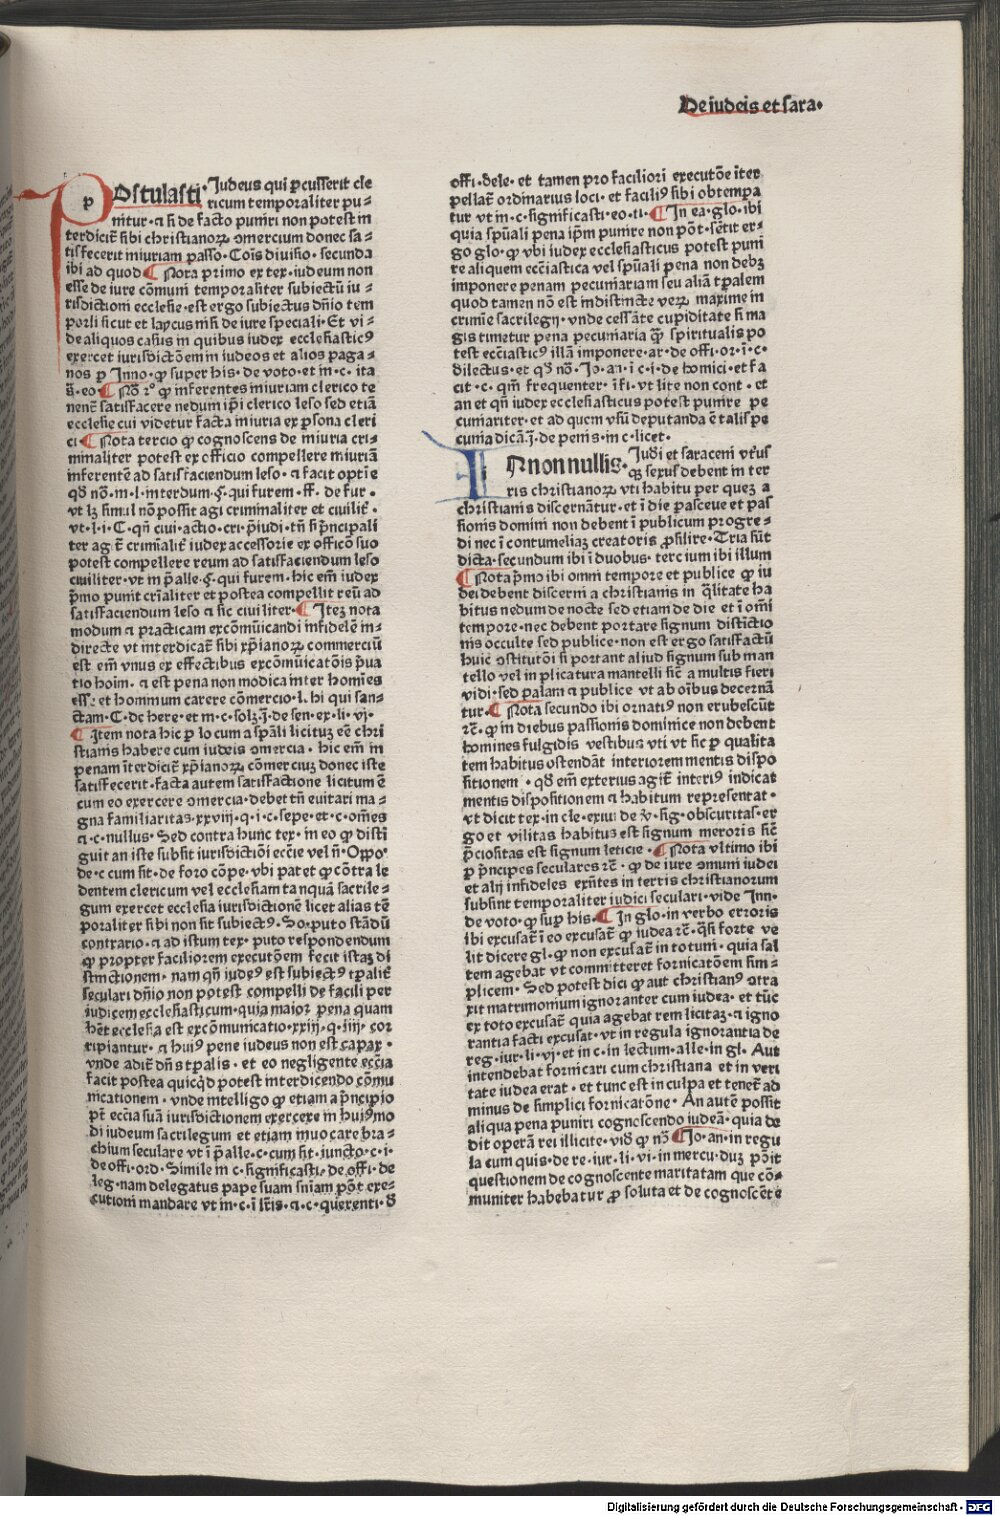 De iudeis et sara·
POstulasti·Iudeus qui pcusserit cle
ricum temporaliter pu⸗
nitur·⁊ si de facto puniri non potest in
terdicit̃ sibi christianoꝝ ↄmercium donec sa⸗
tisfecerit iniuriam passo·Cois diuisio·secunda
ibi ad quod ¶ Nota primo ex tex·iudeum non
esse de iure cõmuni temporaliter subiectũ iu⸗
risdictioni ecclesie·est ergo subiectus dñio tem
porli sicut et laycus nisi de iure speciali·Et vi⸗
de aliquos casus in quibus iudex ecclesiasticꝰ
exercet iurisdictõem in iudeos et alios paga⸗
nos ꝑ Inno·ꝙ super his·de voto·et in·c·ita
q̃·eo ¶ Nõ 2º ꝙ inferentes iniuriam clerico te
nent̃ satisfacere nedum ipi clerico leso sed etiã
ecclesie cui videtur facta iniuria ex ꝑsona cleri
ci ¶ Nota tercio ꝙ cognoscens de iniuria cri⸗
minaliter potest ex officio compellere iniuriã
inferentẽ ad satisfaciendum leso·⁊ facit optie
qđ nõ·in·l·interdum·§·qui furem·ff·de fur·
vt lꝫ simul nõ possit agi criminaliter et ciuilit̃·
vt·l·i·C·qñ ciui·actio·cri·p̃iudi·tñ si p̃ncipali
ter agit̃ criminalit̃ iudex accessorie ex officõ suo
potest compellere reum ad satisfaciendum leso
ciuiliter·vt in p̃alle·§·qui furem·hic em̃ iudex
p̃mo punit crialiter et postea compellit reũ ad
satisfaciendum leso ⁊ sic ciuiliter· ¶ Itez nota
modum ⁊ practicam excõmũicandi infidelẽ in⸗
directe vt interdicat̃ sibi xp̃ianoꝝ commerciũ
est em̃ vnus ex effectibus excõmũicatõis p̃ua
tio hoim·⁊ est pena non modica inter homĩes
esse et hominum carere cõmercio·l·hi qui san⸗
ctam·C·de here·et in·c·solꝫ·j·de sen·ex·li·vj·
¶ Item nota hic ꝑ locum a sp̃ali licituꝫ eẽ chri
stianis habere cum iudeis ↄmercia·hic em̃ in
penam iterdicit̃ xp̃ianoꝝ cõmerciuꝫ donec iste
satisfecerit·facta autem satisfactione licitum ẽ
cum eo exercere ↄmercia·debet tñ euitari ma⸗
gna familiaritas·xxviij·q·i·c·sepe·et·c·omẽs
⁊·c·nullus·Sed contra hunc tex·in eo ꝙ disti
guit an iste subsit iurisdictiõi eccie vel ñ·Oppoº
de·c cum sit·de foro cõpe·vbi patet ꝙ cõtra le
dentem clericum vel ecclesiam tanquã sacrile⸗
gum exercet ecclesia iurisdictionẽ licet alias tẽ
poraliter sibi non sit subiectꝰ·So·puto stãdũ
contrario·⁊ ad istum tex·puto respondendum
ꝙ propter faciliorem executõem fecit istaꝫ di
stinctionem·nam qñ iudeꝰ est subiectꝰ tꝑalit̃
seculari dñio non potest compelli de facili per
iudicem ecclesiasticum·quia maior pena quam
het̃ ecclesia est excõmunicatio·xxiij·q·iiij·cor
ripiantur·⁊ huiꝰ pene iudeus non est capax·
vnde adit̃ dñs tꝑalis·et eo negligente eccia
facit postea quicqd potest interdicendo cõmu
nicationem·vnde intelligo ꝙ etiam a p̃ncipio
pt̃ eccia suã iurisdictionem exercere in huiꝰmo
di iudeum sacrilegum et etiam inuocare bra⸗
chium seculare vt i p̃alle·c·cum sit·iuncto·c·i·
de offi·ord·Simile in c·significasti·de offi·de
leg·nam delegatus pape suam sniam põt exe⸗
cutioni mandare vt in·c·i lr̃is·⁊·c·querenti·đ
offi·dele·et tamen pro faciliori executõe iter
pellat̃ ordinarius loci·et faciliꝰ sibi obtempa
tur vt in·c·significasti·eo·ti· ¶ In ea·glo·ibi
quia spũali pena ipm punire non põt·sẽtit er⸗
go glo·ꝙ vbi iudex ecclesiasticus potest puni
re aliquem ecclesiastica vel spũali pena non debꝫ
imponere penam pecuniariam seu aliã tꝑalem
quod tamen nõ est indistincte verꝝ maxime in
crimĩe sacrilegij·vnde cessãte cupiditate si ma
gis timetur pena pecuniaria q̃ spiritualis po
test ecciasticꝰ illã imponere·ar·de offi·or·i·c·
dilectus·et qđ nõ·Io·an·i c·i·de homici·et fa
cit·c·qm̃ frequenter·ifi·vt lite non cont·et
an et qñ iudex ecclesiasticus potest punire pe
cuniariter·et ad quem vsũ deputanda ẽ talis pe
cunia dicã·j·de penis·in c·licet·
IN nonnullis·Iudi et saraceni vtr̃ius
qꝫ sexus debent in ter
ris christianoꝝ vti habitu per quez a
christianis discernãtur·et i die pasceue et pas
sionis domini non debent i publicum progre⸗
di nec i contumeliaꝫ creatoris ꝓsilire·Tria sũt
dicta·secundum ibi i duobus·tercium ibi illum
¶ Nota p̃mo ibi omni tempore et publice ꝙ iu
dei debent discerni a christianis in q̃litate ha
bitus nedum de nocte sed etiam de die et i omi
tempore·nec debent portare signum distictio
nis occulte sed publice·non est ergo satisfactũ
huic ↄstitutõi si portant aliud signum sub man
tello vel in plicatura mantelli sic̃ a multis fieri
vidi·sed palam ⁊ publice vt ab oĩbus decernã
tur· ¶ Nota secundo ibi ornatiꝰ non erubescũt
rc̃·ꝙ in diebus passionis dominice non debent
homines fulgidis vestibus vti vt sic ꝑ qualita
tem habitus ostendãt interiorem mentis dispo
sitionem·qđ em̃ exterius agit̃ interiꝰ indicat
mentis dispositionem ⁊ habitum representat·
vt dicit tex·in cle·exiui de ꝟ·sig·obscuritas·er
go et vilitas habitus est signum meroris sic̃
p̃ciositas est signum leticie· ¶ Nota vltimo ibi
ꝑ p̃ncipes seculares rc̃·ꝙ de iure ↄmuni iudei
et alij infideles exñtes in terris christianorum
subsint temporaliter iudici seculari·vide Inn·
de voto·ꝙ suꝑ his· ¶ In glo·in verbo erroris
ibi excusat̃ i eo excusat̃ ꝙ iudea rc̃·q̃si forte ve
lit dicere gl·ꝙ non excusat̃ in totum·quia sal
tem agebat vt committeret fornicatõem sim⸗
plicem·Sed potest dici ꝙ aut christianꝰ ↄtra
xit matrimonium ignoranter cum iudea·et tũc
ex toto excusat̃ quia agebat rem licitaꝫ·⁊ igno
rantia facti excusat·vt in regula ignorantia de
reg·iur·li·vj·et in c·in lectum·alle·in gl·Aut
intendebat fornicari cum christiana et in veri
tate iudea erat·et tunc est in culpa et tenet̃ ad
minus de simplici fornicatõne·An autẽ possit
aliqua pena puniri cognoscendo iudeã·quia de
dit operã rei illicite·vid̃ ꝙ nõ ¶ Io·an·in regu
la cum quis·de re·iur·li·vi·in mercu·duꝫ põit
questionem de cognoscente maritatam que cõ⸗
muniter habebatur ꝓ soluta et de cognoscẽte
Digitalisierung gefördert durch die Deutsche Forschungsgemeinschaft - DFG